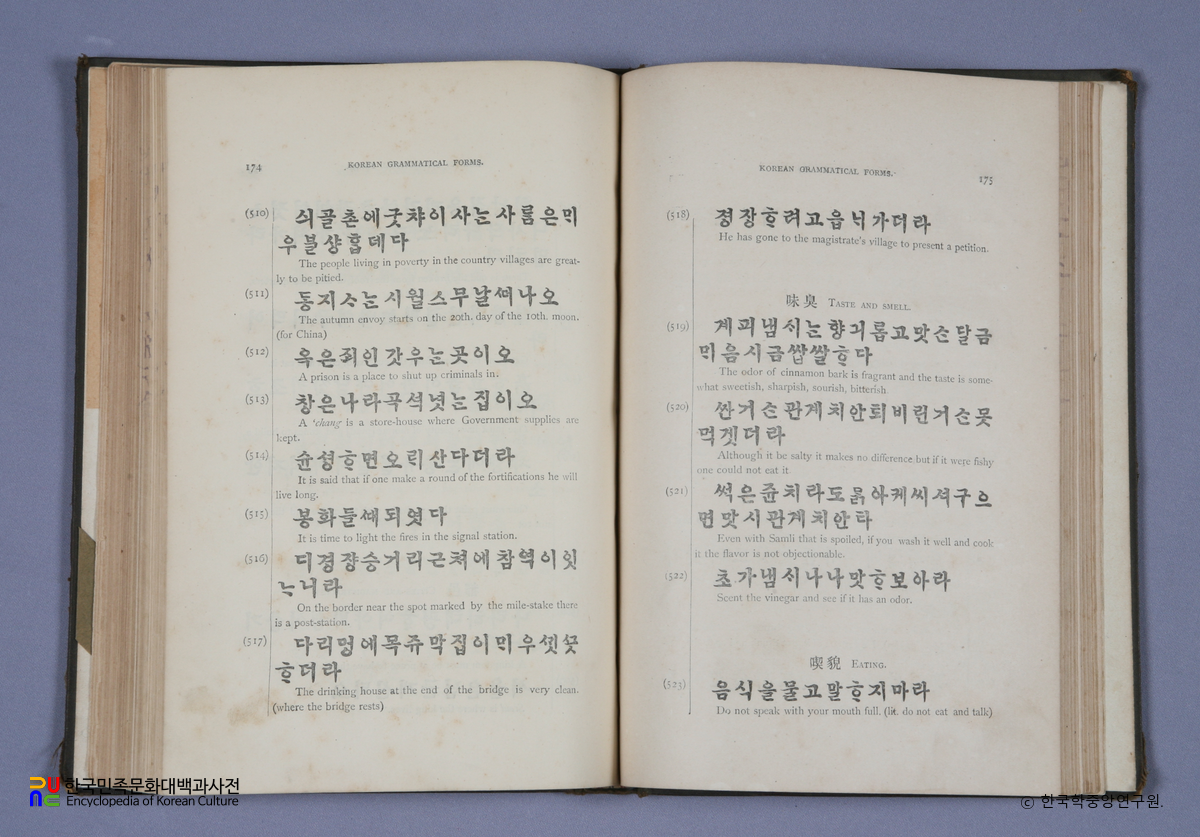 174
KOREAN GRAMMATICAL FORMS.
(510) 싀골촌에궁챠이사ᄂᆞᆫ사ᄅᆞᆷ은ᄆᆡ
우불샹ᄒᆞᆸ데다
The people living in poverty in the country villages are great-
ly to be pitied.
(511) 동지ᄉᆞᄂᆞᆫ시월스무날ᄯᅥ나오
The autumn envoy starts on the 20th. day of the 10th. moon.
(for China)
(512) 옥은죄인갓우ᄂᆞᆫ곳이오
A prison is a place to shut up criminals in.
(513) 창은나라곡셕넛ᄂᆞᆫ집이오
A 'chang is a store-house where Government supplies are
kept.
(514) 슌셩ᄒᆞ면오ᄅᆡ산다더라
It is said that if one make a round of the fortifications he will
live long.
(515) 봉화들ᄯᅢ되엿다
It is time to light the fires in the signal station.
(516) 디경쟝승거리근쳐에참역이잇
ᄂᆞ니라
On the border near the spot marked by the mile-stake there
is a post-station.
(517) 다리멍에목쥬막집이ᄆᆡ우ᄭᆡᄭᅳᆺ
ᄒᆞ더라
The drinking house at the end of the bridge is very clean.
(where the bridge rests)
KOREAN GRAMMATICAL FORMS.
175
(518) 졍장ᄒᆞ려고읍ᄂᆡ가더라
He has gone to the magistrate's village to present a petition.
味臭 TASTE AND SMELL.
(519) 계피냄ᄉᆡᄂᆞᆫ향긔롭고맛슨달금
ᄆᆡ음시금쌉쌀ᄒᆞ다
The odor of cinnamon bark is fragrant and the taste is some-
what sweetish, sharpish, sourish, bitterish
(520) ᄶᅡᆫ거슨관계치안퇴비린거슨못
먹겟더라
Although it be salty it makes no difference but if it were fishy
one could not eat it
(521) 썩은쥰치라도ᄆᆞᆰ아케씨셔구으
면맛시관계치안타
Even with Samli that is spoiled, if you wash it well and cook
it the flavor is not objectionable.
(522) 초가냄ᄉᆡ나나맛ᄒᆞ보아라
Scent the vinegar and see if it has an odor.
喫貌 EATING.
(523) 음식을물고말ᄒᆞ지마라
Do not speak with your mouth full. (lit. do not eat and talk)
한국민족문화대백과사전
Encyclopedia of Korean Culture
© 한국학중앙연구원.